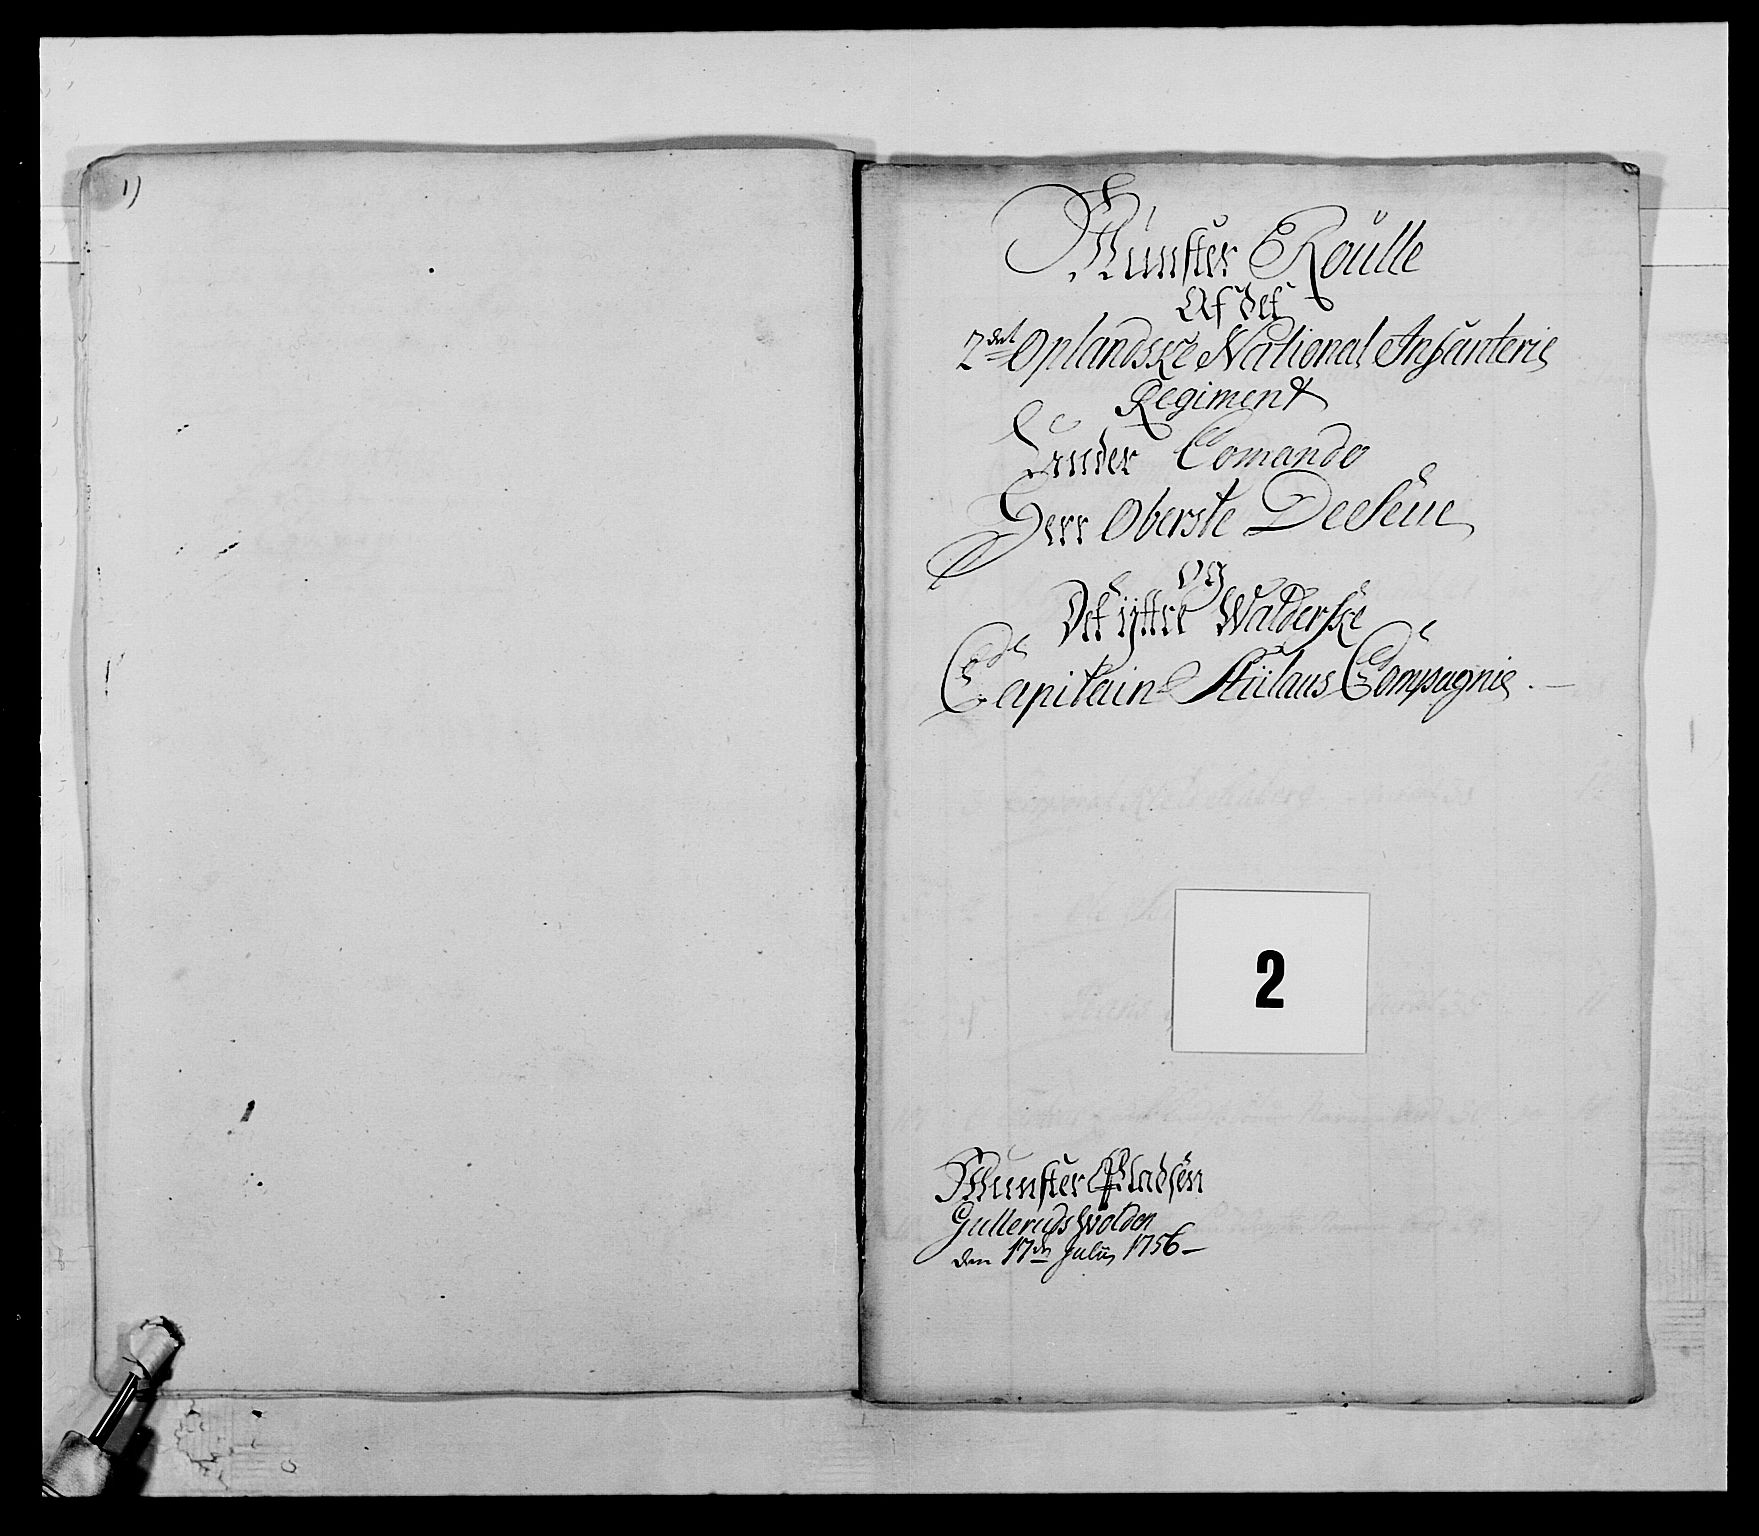 1)
Münster Roulle
Af det
2det Oplandske National Infanterie
Regiment
Under Comando
Herr Oberste DeSeüe
og
Det ÿttre Walderske
Capitain Stülaus Compagnie.
2
Munster Pladsen
Gulleruds Wolden
den 17de Julÿ 1756